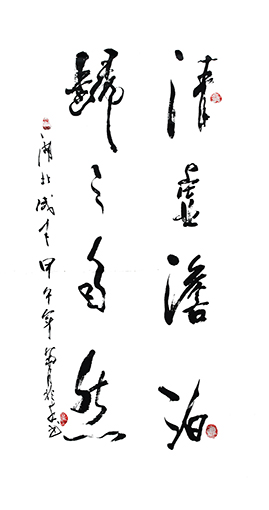 清虚澹泊
歸之自然
湖北成才甲午年